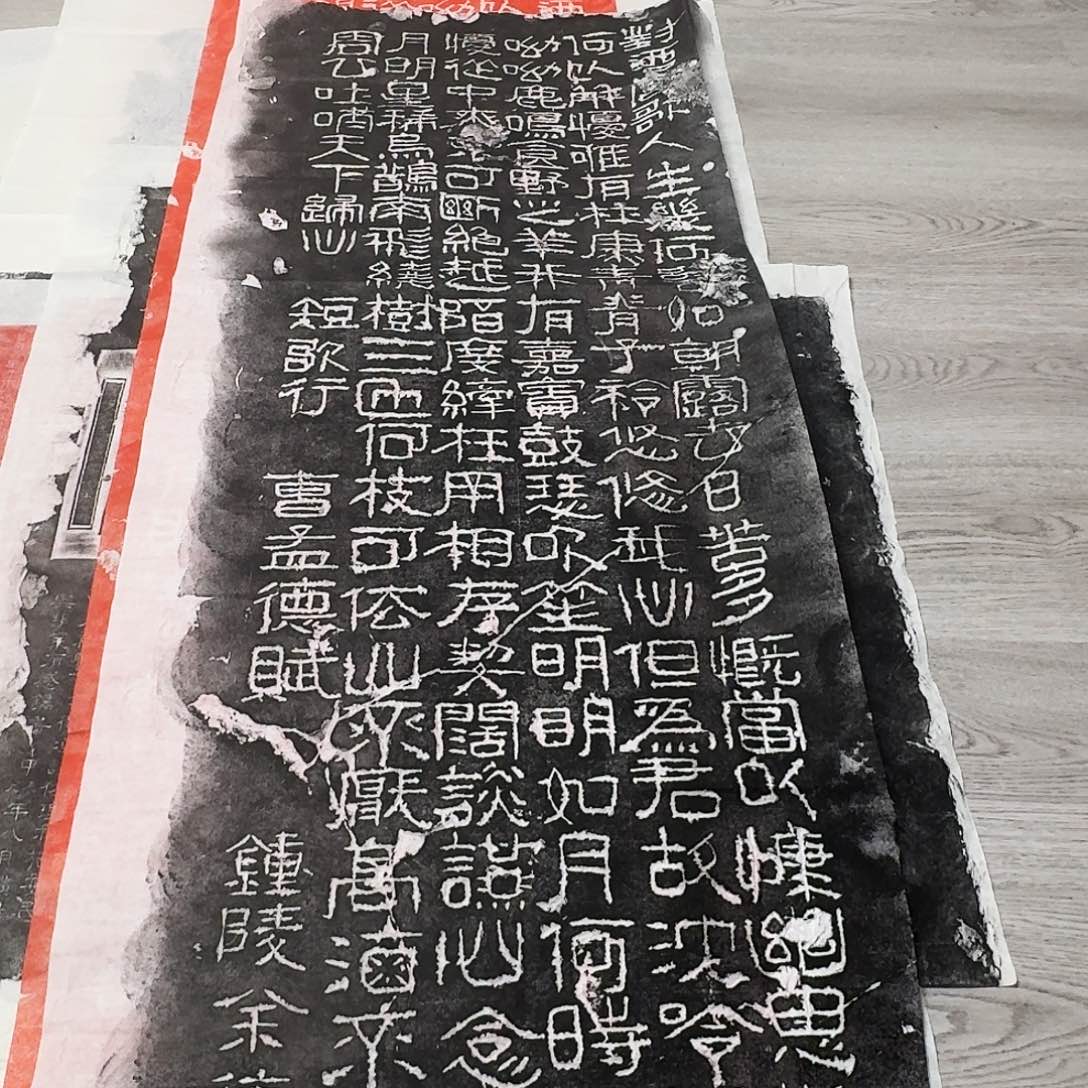 對酒當歌人生幾何譬如朝露去日苦多慨當以慷幽思
何以解憂唯有杜康青青子衿悠悠我心但為君故沈吟
呦呦鹿鳴食野之苹我有嘉賓鼓瑟吹笙明明如月何時
憂從中來不可斷絕越陌度阡枉用相存契闊談讌心念
月明星稀烏鵲南飛繞樹三匝何枝可依山不厭高海不
周公吐哺天下歸心 短歌行 曹孟德賦 鍾陵余